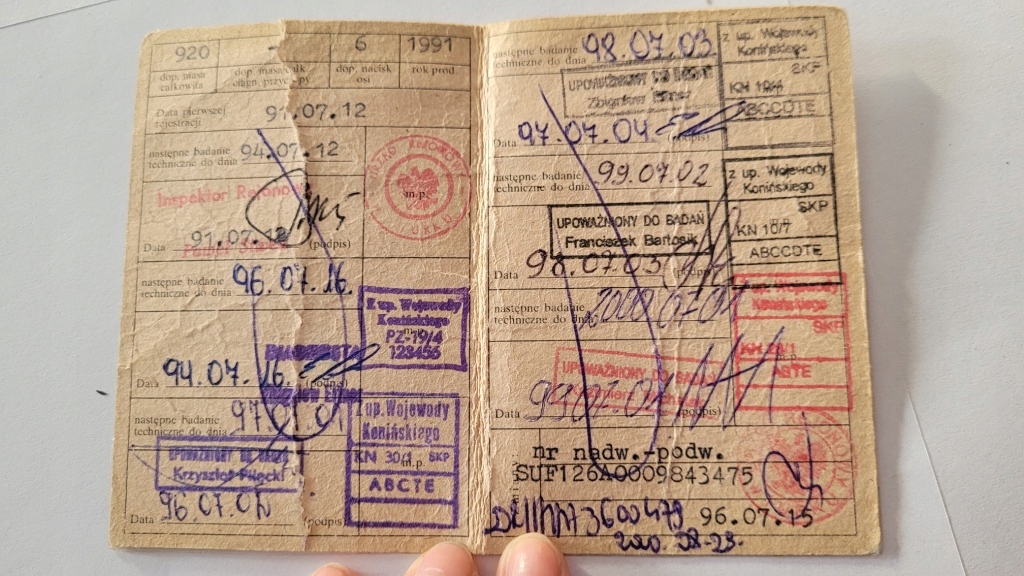 920 - 6 1991
dop. masa całkowita
dop. nacisk osi
rok prod.
Data pierwszej rejestracji 91.07.12
następne badanie techniczne do dnia 94.07.12
Inspektor Rejonowy
m.p.
Data 91.07.12 (podpis)
następne badanie techniczne do dnia 96.07.16.
Z up. Wojewody
Konińskiego
PZ-19/4
123456
Data 94.07.16. (podpis)
następne badanie techniczne do dnia 97.07.07
Z up. Wojewody
Konińskiego
KN 30/1 m.p. SKP
ABCTE
UPOWAŻNIONY DO BADAŃ
Krzysztof
Data 96.07.07 (podpis)
następne badanie techniczne do dnia 98.07.03
UPOWAŻNIONY DO BADAŃ
Zbigniew
z up. Wojewody
Konińskiego
SKP
KN 19/4
ABCCDTE
Data 97.07.04 (podpis)
następne badanie techniczne do dnia 99.07.02
z up. Wojewody
Konińskiego
SKP
KN 10/7
ABCCDTE
UPOWAŻNIONY DO BADAŃ
Franciszek Bartosik
Data 98.07.03 (podpis)
następne badanie techniczne do dnia 2000.07.01
Konińskiego
SKP
ABTE
UPOWAŻNIONY DO BADAŃ
Data 99.07.01 (podpis)
nr nadw.-podw.
SUF126A0009843475
3600479 96.07.15